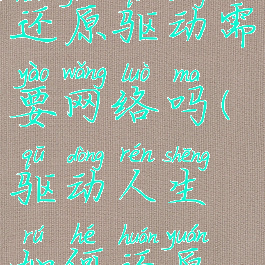 还原驱动需
yào wǎng luò ma
要网络吗(
qū dòng rén shēng
驱动人生
rú hé huán yuán
如何还原